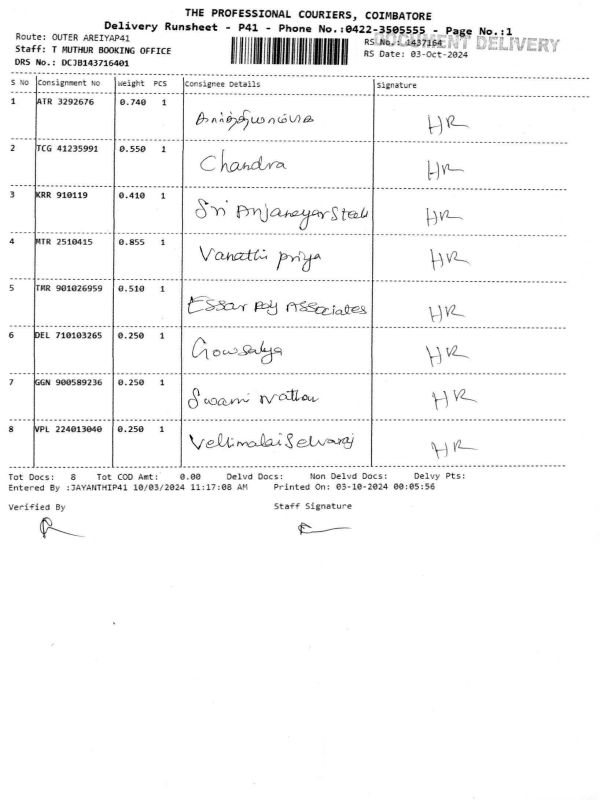 THE PROFESSIONAL COURIERS, COIMBATORE
Delivery Runsheet - P41 - Phone No.:0422-3505555 - Page No.:1
DOCUMENT DELIVERY
Route: OUTER AREIYAP41 RS No.: 1437164
Staff: T MUTHUR BOOKING OFFICE RS Date: 03-Oct-2024
DRS No.: DCJB143716401
S No Consignment No Weight PCS Consignee Details Signature
1 ATR 3292676 0.740 1 HR
2 TCG 41235991 0.550 1 Chandra HR
3 KRR 910119 0.410 1 Sri Anjaneyar Steels HR
4 MTR 2510415 0.855 1 Vanathi priya HR
5 TMR 901026959 0.510 1 Essar Associates HR
6 DEL 710103265 0.250 1 Gowsalya HR
7 GGN 900589236 0.250 1 Swami Nathan HR
8 VPL 224013040 0.250 1 Vellimalai Selvaraj HR
Tot Docs: 8 Tot COD Amt: 0.00 Delvd Docs: Non Delvd Docs: Delvy Pts:
Entered By :JAYANTHIP41 10/03/2024 11:17:08 AM Printed On: 03-10-2024 00:05:56
Verified By Staff Signature